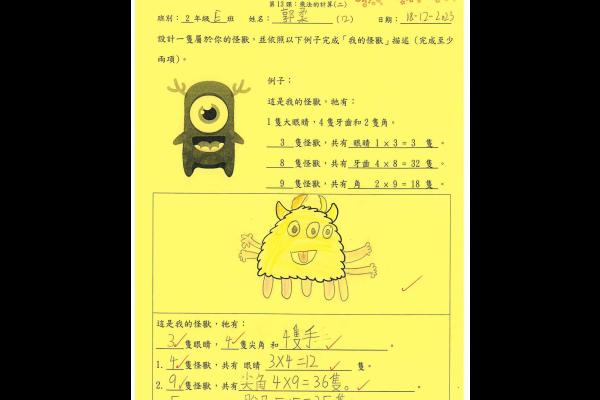 第13課：乘法的計算(二)
班別：2年級E班 姓名：郭柔 (12) 日期：18-12-2023
設計一隻屬於你的怪獸，並依照以下例子完成「我的怪獸」描述（完成至少
兩項）。
例子：
這是我的怪獸，牠有：
1隻大眼睛，4隻牙齒和2隻角。
3 隻怪獸，共有 眼睛 1 x 3 = 3 隻。
8 隻怪獸，共有 牙齒 4 x 8 = 32 隻。
9 隻怪獸，共有 角 2 x 9 = 18 隻。
這是我的怪獸，牠有：
3 隻眼睛，4 隻尖角 和 4隻手。
1. 4 隻怪獸，共有 眼睛 3X4=12 隻。
2. 9 隻怪獸，共有 尖角 4X9=36隻。